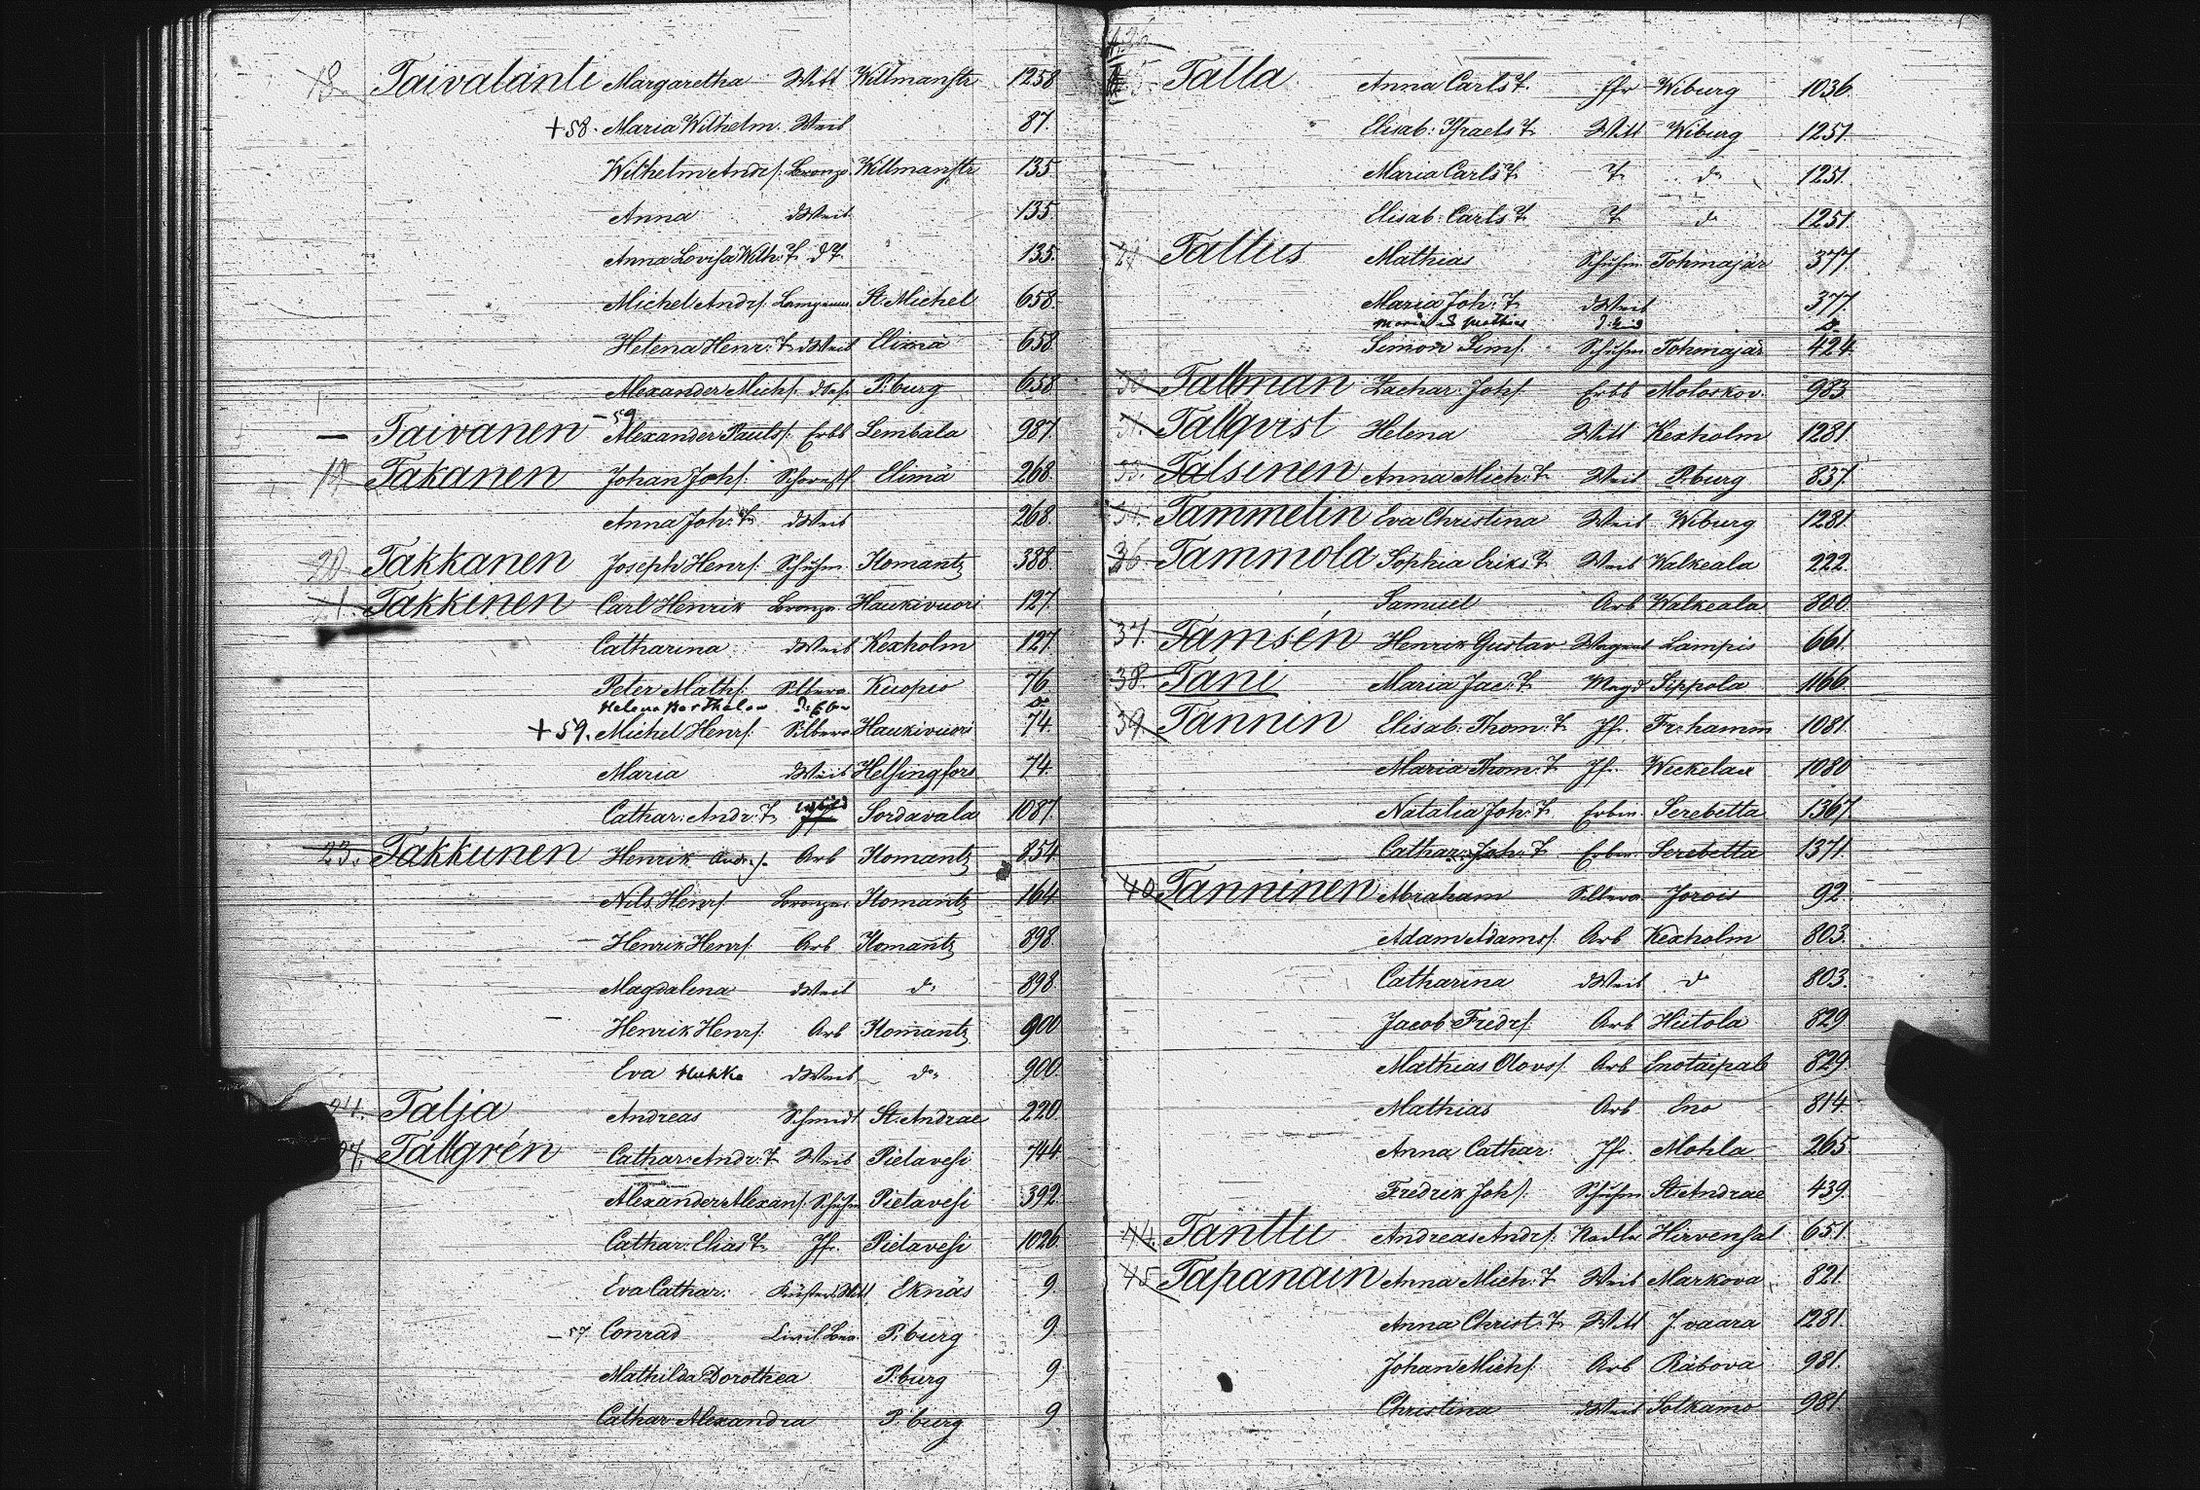 18. Taivalanti Margaretha Witt Willmanstr 1258
+58. Maria Wilhelm. Weib 87.
Wilhelm Andrs. Bronze Willmanstr 135
Anna dWeib 135.
Anna Lovisa Wilh: T. dT 135.
Michel Andrs. St. Michel 658.
Helena Henr: T. dWeib Elimä 658.
Alexander Michs. dSs. P.burg 658
— Taivanen -59 Alexander Pauls. Erbb Lembala 987.
19. Takanen Johan Johs. Elimä 268.
Anna Joh: T. dWeib 268.
20 Takkanen Joseph Henrs. Schuhm. Ilomantz 388.
21. Takkinen Carl Henrik Bronze. Haukivuori 127.
Catharina dWeib Kexholm 127.
Peter Maths. Silbera Kuopio 76
Helena
+59. Michel Henrs. Silbera Haukivuori 74.
Maria dWeib Helsingfors 74.
Cathar: Andr: T. Sordavala 1087.
23. Takkunen Henrik Andrs. Arb Ilomantz 854
Nils Henrs. Bronzear Ilomantz 164
Henrik Henrs. Arb Ilomantz 898.
Magdalena dWeib do 898.
Henrik Henrs. Arb Ilomantz 900
Eva Hukka dWeib do 900
24. Talja Andreas Schmidt St. Andrae 220.
27. Tallgrén Cathar: Andr: T. Weib Pielavesi 744
Alexander Alexans. Schuhm Pielavesi 392
Cathar: Elias T. Jfr. Pielavesi 1026.
Eva Cathar: Küsters Witt Eknäs 9.
-57 Conrad P.burg 9.
Mathilda Dorothea P.burg 9.
Cathar: Alexandra P.burg 9
Talla Anna Carls T. Jfr Wiburg 1036.
Elisab: Israels T. Witt Wiburg 1251.
Maria Carls T. T. do 1251.
Elisab: Carls T. T. do 1251.
Tallus Mathias Schuhm Tohmajär 377.
Maria Joh: T. dWeib 377.
Simon Sims. Schuhm Tohmajär 424.
30. Tallman Zachar: Johs. Erbb Moloskov. 983.
31. Tallqvist Helena Witt Kexholm 1281.
33. Talsinen Anna Mich: T. Weib P.burg 837.
34. Tammelin Eva Christina Weib Wiburg 1281.
36. Tammola Sophia Eriks T. Weib Walkeala 222.
Samuel Arb Walkeala 800
37. Tamsén Henrik Gustav Lampis 661.
38. Tani Maria Jac: T. Magd Sippola 1166.
39. Tannin Elisab: Thom: T. Jfr. Fr:hamm 1081.
Maria Thom: T. Jfr. Weckelax 1080
Natalia Joh: T. Erbin. Serebetta 1367.
Cathar: Joh: T. Erbin. Serebetta 1371.
40. Tanninen Abraham Silbera Jorois 92.
Adam Adams. Arb Kexholm 803.
Catharina dWeib do 803.
Jacob Fredrs. Arb Hiitola 829.
Mathias Olovs. Arb Enotaipale 829.
Mathias Arb Eno 814.
Anna Cathar: Jfr. Mohla 265
Fredrik Johs. Schuhm St. Andrae 439.
44. Tanttu Andreas Andrs. Nadler Hirvensal 651.
45. Tapanain Anna Mich: T. Weib Markova 821.
Anna Christ: T. Witt J.vaara 1281.
Johan Michs. Arb Räbova 981.
Christina dWeib Sotkamo 981.